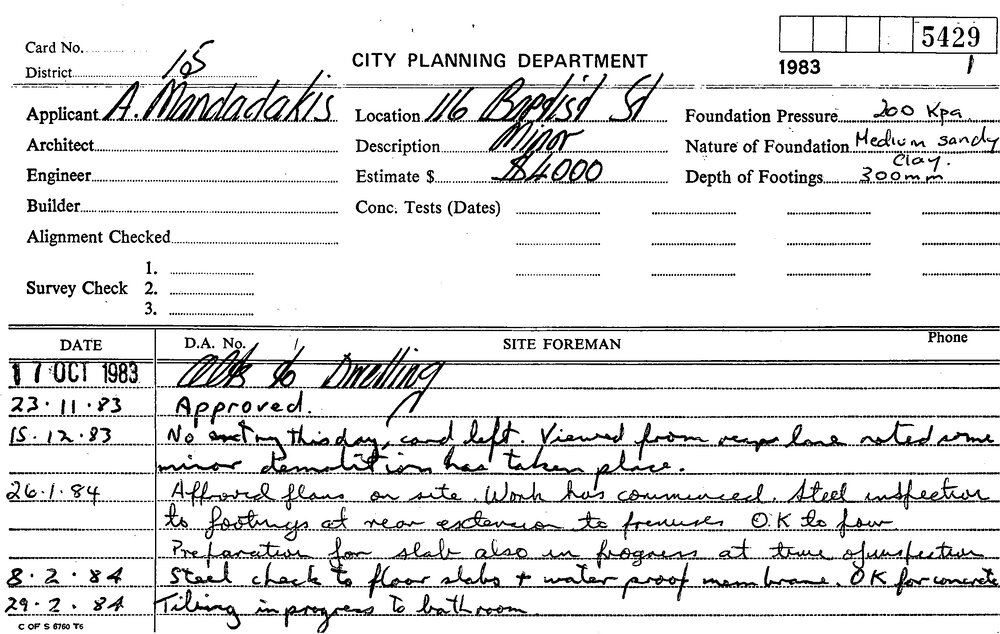 5429
Card No.
District 105
CITY PLANNING DEPARTMENT
1983 1
Applicant A. Mandadakis Location 116 Baptist St Foundation Pressure 200 Kpa.
Architect Description Minor Nature of Foundation Medium sandy clay.
Engineer Estimate $ $4000 Depth of Footings 300mm
Builder Conc. Tests (Dates)
Alignment Checked
1.
Survey Check 2.
3.
DATE D.A. No. SITE FOREMAN Phone
17 OCT 1983 Alts to Dwelling
23.11.83 Approved.
15.12.83 No entry this day, card left. Viewed from rear lane noted some
minor demolition has taken place.
26.1.84 Approved plans on site. Work has commenced. Steel inspection
to footings at rear extension to premises OK to pour
Preparation for slab also in progress at time of inspection
8.2.84 Steel check to floor slabs + water proof membrane. OK for concrete
29.2.84 Tiling in progress to bathroom.
C OF S 6760 T6